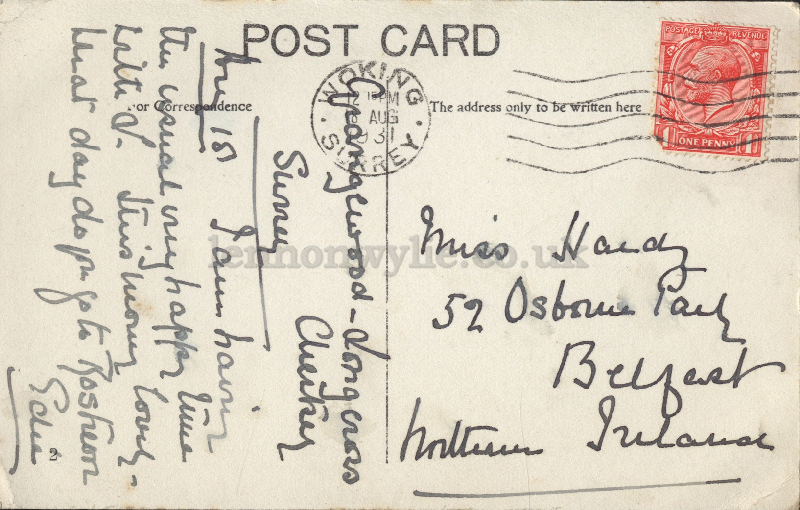 POST CARD
For Correspondence
The address only to be written here
POSTAGE REVENUE
1 ONE PENNY 1
WOKING
12 PM
AUG
1931
SURREY
Grangewood - Longcross
Chertsey
Surrey
Aug 18
I am having
the usual very happy time
with J. This lovely
What day do you go to Rostrevor
Edie
2
Miss Handy
52 Osborne Park
Belfast
Northern Ireland
lennonwylie.co.uk